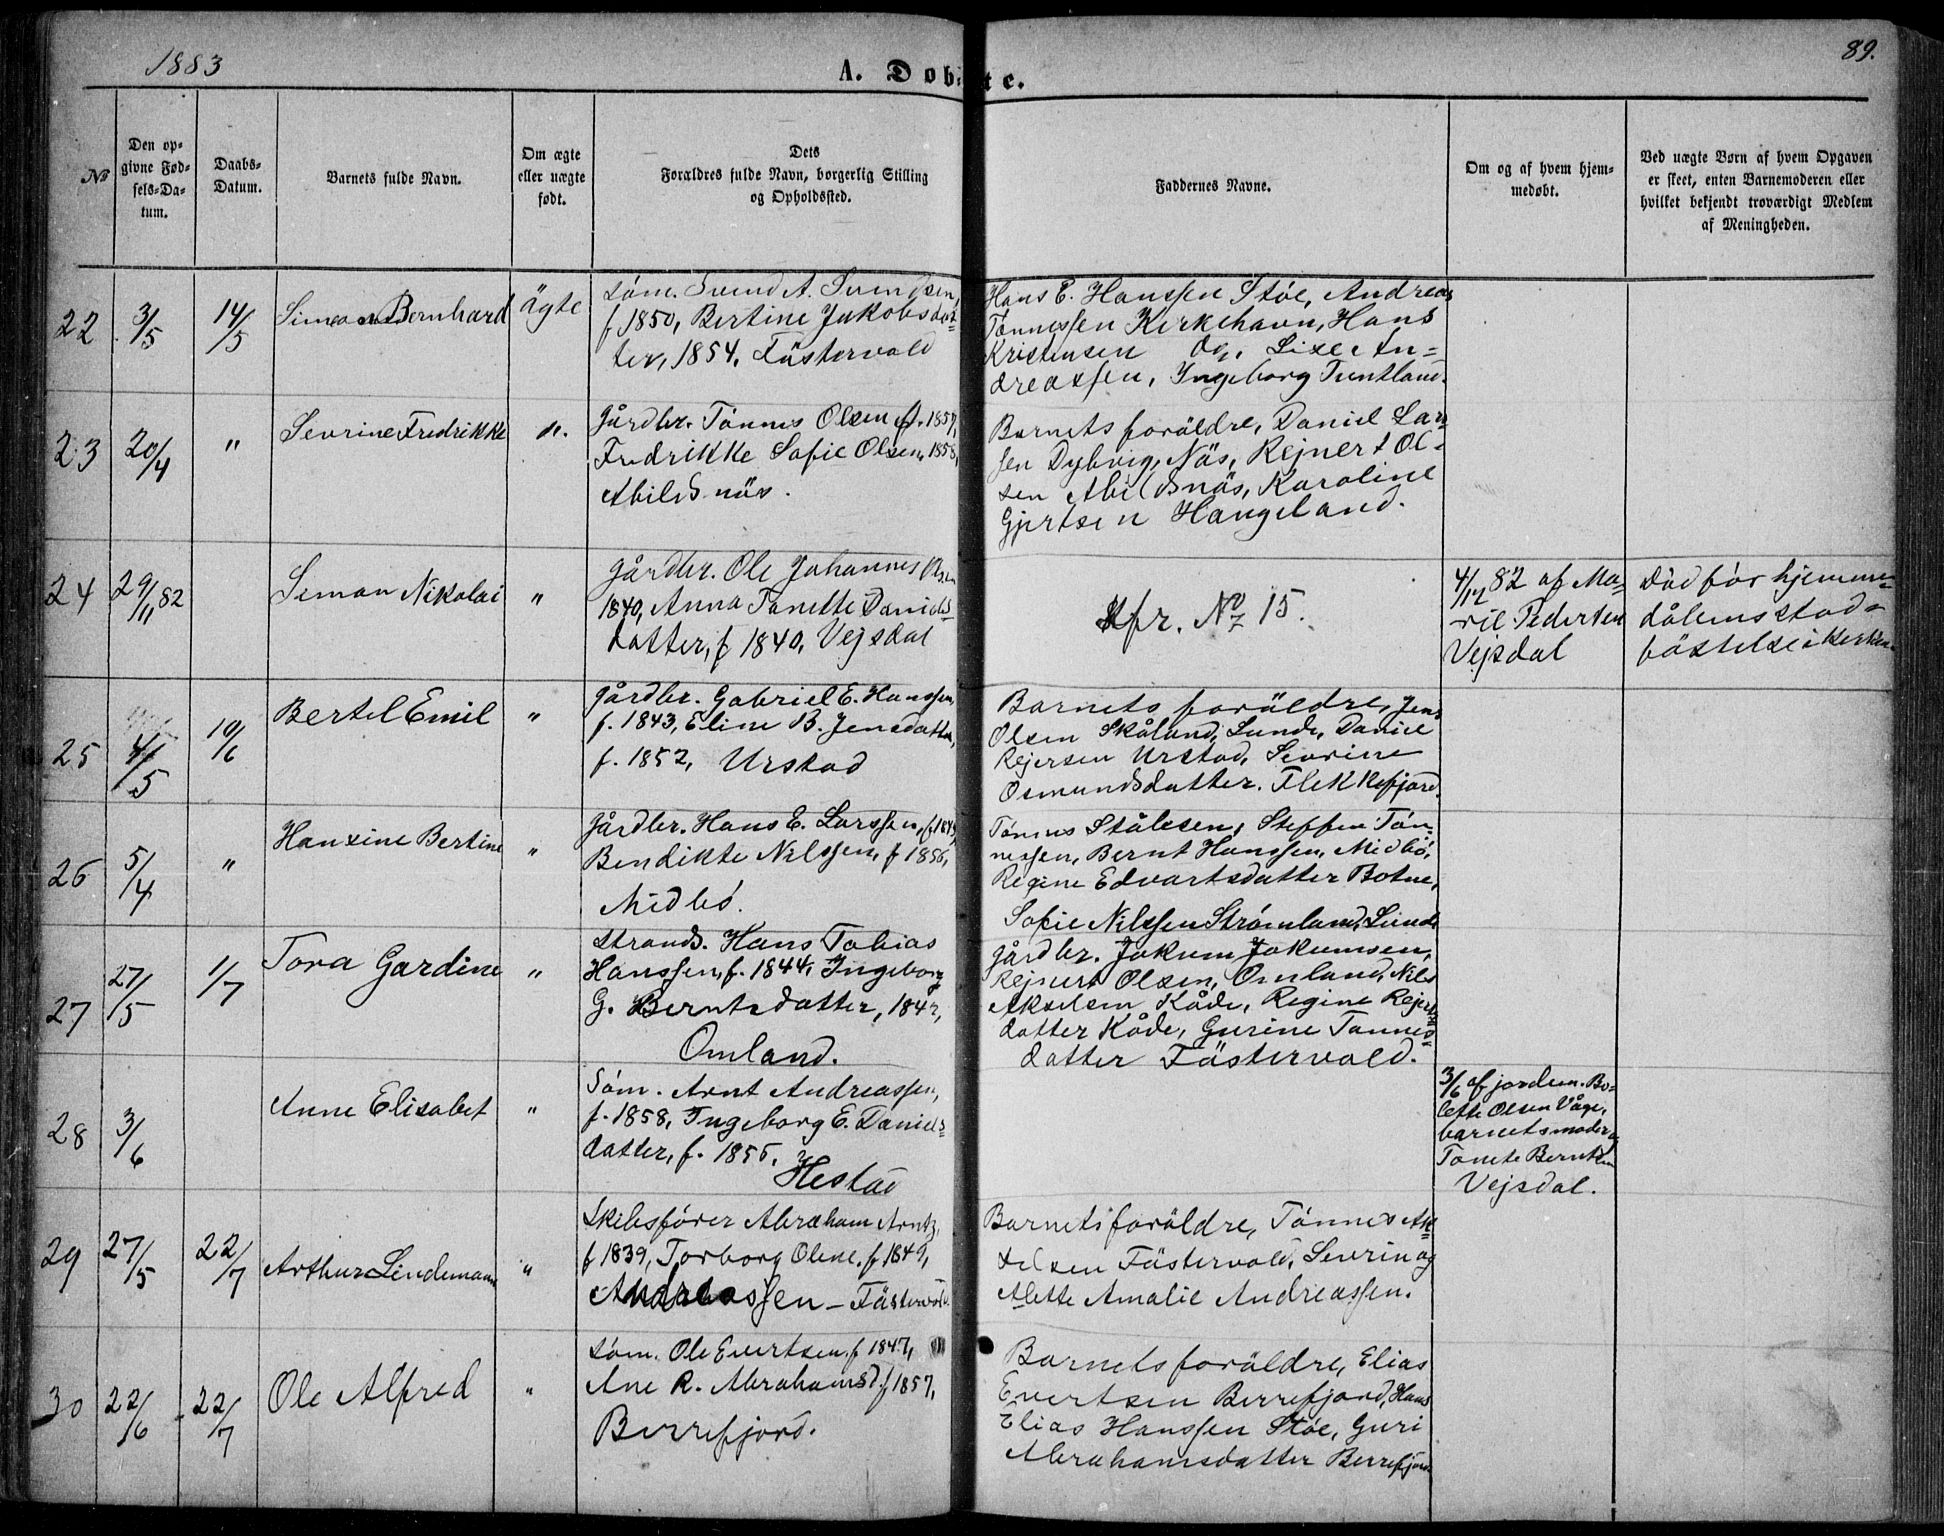 1883
A. Døbte.
89.
No
Den op-
givne Fød-
sels-Da-
tum.
Daabs-
Datum.
Barnets fulde Navn.
Om ægte
eller uægte
født.
Dets
Forældres fulde Navn, borgerlig Stilling
og Opholdssted.
Faddernes Navne.
Om og af hvem hjem-
medøbt.
Ved uægte Børn af hvem Opgaven
er skeet, enten Barnemoderen eller
hvilket bekjendt troværdigt Medlem
af Meningheden.
22
3/5
14/5
Simon Bernhard
ägte
søm. Svend A. Svendsen,
f 1850, Bertine Jakobsdat=
ter, 1854, Fästervold
Hans E. Hanssen Støe, Andreas
Tønnessen Kirkehavn, Hans
Kristensen og Lise An=
dreassen, Ingeborg Tuntland.
23
20/4
"
Sevrine Fredrikke
"
gårdbr. Tønnes Olsen f. 1857,
Fredrikke Sofie Olsen, 1858,
Abilsnäs.
Barnets foräldre, Daniel Lar
sen Dybvig, Näs, Rejnert Ol-
sen Abilsnäs, Karoline
Gjertsen Haugeland.
24
29/11 82
Simon Nikolai
"
gårdbr. Ole Johannes Olsen
1840, Anna Tonette Daniels
datter, f 1840, Vejsdal
Kfr. No 15.
4/12 82 af Ma-
rie Pedersen
Vejsdal
Död før hjemme-
dåbens stad-
fästelse i kirken
25
4/5
10/6
Bertel Emil
"
gårdbr. Gabriel E. Hanssen,
f. 1843, Eline B. Jensdatter,
f. 1852, Urstad
Barnets foräldre, Jens
Olsen Skåland, Lunde, Daniel
Rejersen Urstad, Sevrine
Osmundsdatter. Flekkefjord.
26
5/4
"
Hansine Bertine
"
gårdbr. Hans E. Larssen, f. 1849
Bendikte Nilssen, f 1856,
Midbö.
Tønnes Stålesen, Steffen Tøn-
nessen, Bernt Hanssen, Midbö,
Regine Edvartsdatter Botne,
Sofie Nilssen Strømland, Lunde
27
27/5
1/7
Tora Gardine
"
strands. Hans Tobias
Hanssen, f. 1844, Ingeborg
G. Berntsdatter, 1842,
Omland.
gårdbr. Jokum Jokumsen,
Rejnert Olsen, Omland, Nils
Akselsen Kåde, Regine Rejerts
datter Kåde, Gurine Tønnes=
datter Fästervold.
28
3/6
Anne Elisabet
"
Søm. Arnt Andreassen,
f. 1858, Ingeborg E. Daniels=
datter, f. 1856,
Hestad
3/6 af jordem. Bo-
lette Olsen Våge,
barnets moder og
Tonete Berntsen
Vejsdal.
29
27/5
22/7
Arthur Lindemann
"
Skibsfører Abraham Arntz,
f 1839, Torborg Olene, f 1849,
Andreassen – Fästervold.
Barnets foräldre, Tønnes Ak
selsen Fästervold, Severin og
Alette Amalie Andreassen.
30
22/6
22/7
Ole Alfred
"
søm. Ole Evertsen, f 1847,
Ane R. Abrahamsd. f 1857,
Berrefjord.
Barnets foräldre, Elias
Evertsen Berrefjord, Hans
Elias Hanssen Støe, Guri
Abrahamsdatter Berrefjord